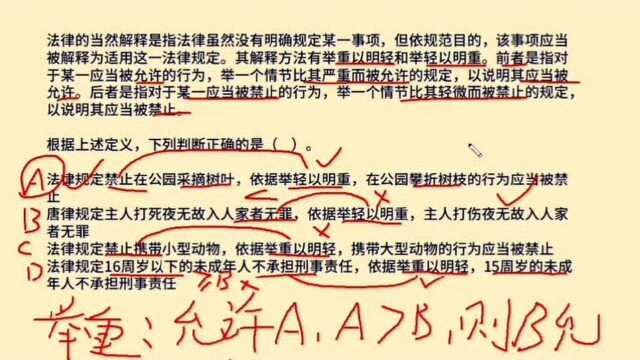 法律的当然解释是指法律虽然没有明确规定某一事项，但依规范目的，该事项应当
被解释为适用这一法律规定。其解释方法有举重以明轻和举轻以明重。前者是指对
于某一应当被允许的行为，举一个情节比其严重而被允许的规定，以说明其应当被
允许。后者是指对于某一应当被禁止的行为，举一个情节比其轻微而被禁止的规定，
以说明其应当被禁止。
根据上述定义，下列判断正确的是（ ）。
A 法律规定禁止在公园采摘树叶，依据举轻以明重，在公园攀折树枝的行为应当被禁
止
B 唐律规定主人打死夜无故入人家者无罪，依据举轻以明重，主人打伤夜无故入人家
者无罪
C 法律规定禁止携带小型动物，依据举重以明轻，携带大型动物的行为应当被禁止
D 法律规定16周岁以下的未成年人不承担刑事责任，依据举重以明轻，15周岁的未成
年人不承担刑事责任
举重：允许A，A>B，则B允